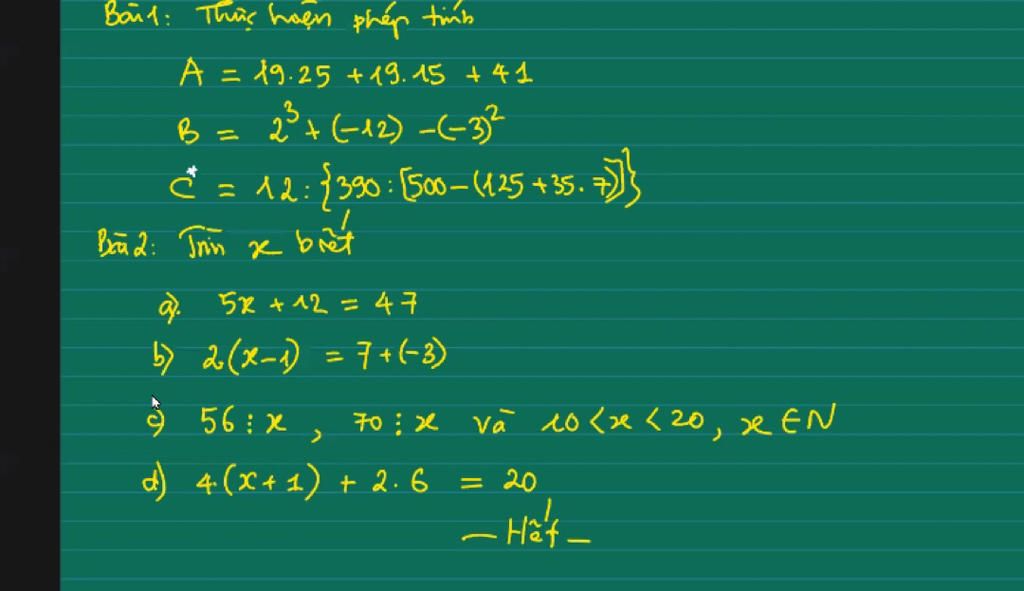 Bài 1: Thực hiện phép tính
A = 19.25 + 19.15 + 41
B = 2³ + (-12) - (-3)²
C = 12 : {390 : [500 - (125 + 35.7)]}
Bài 2: Tìm x biết
a) 5x + 12 = 47
b) 2(x-1) = 7 + (-3)
c) 56 ⋮ x , 70 ⋮ x và 10 < x < 20, x ∈ N
d) 4.(x+1) + 2.6 = 20
— Hết —